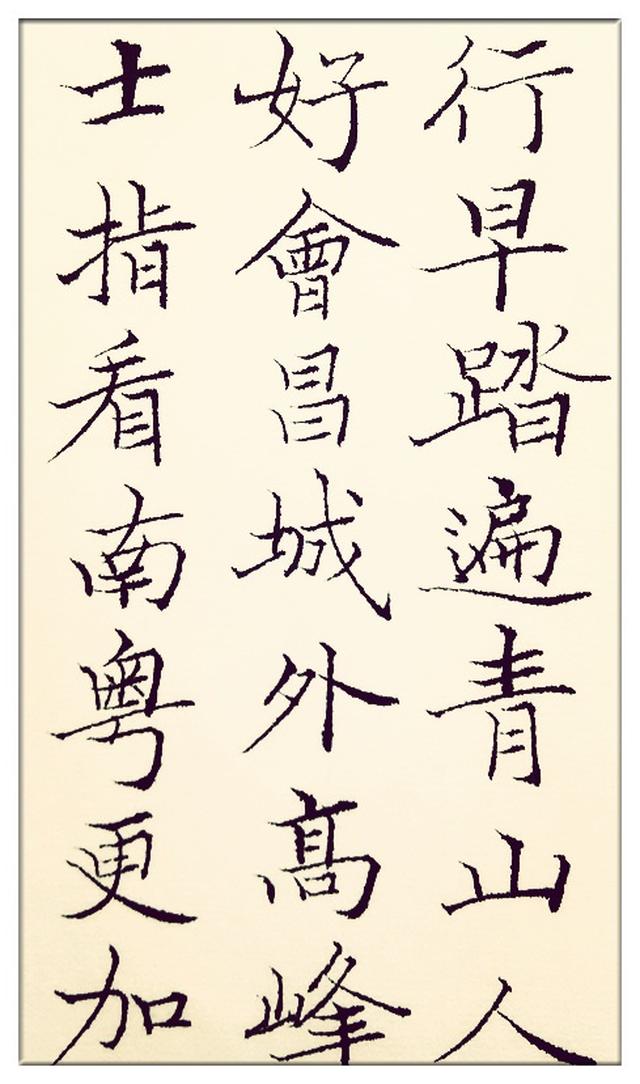 行早踏遍青山人
好會昌城外高峰
士指看南粤更加